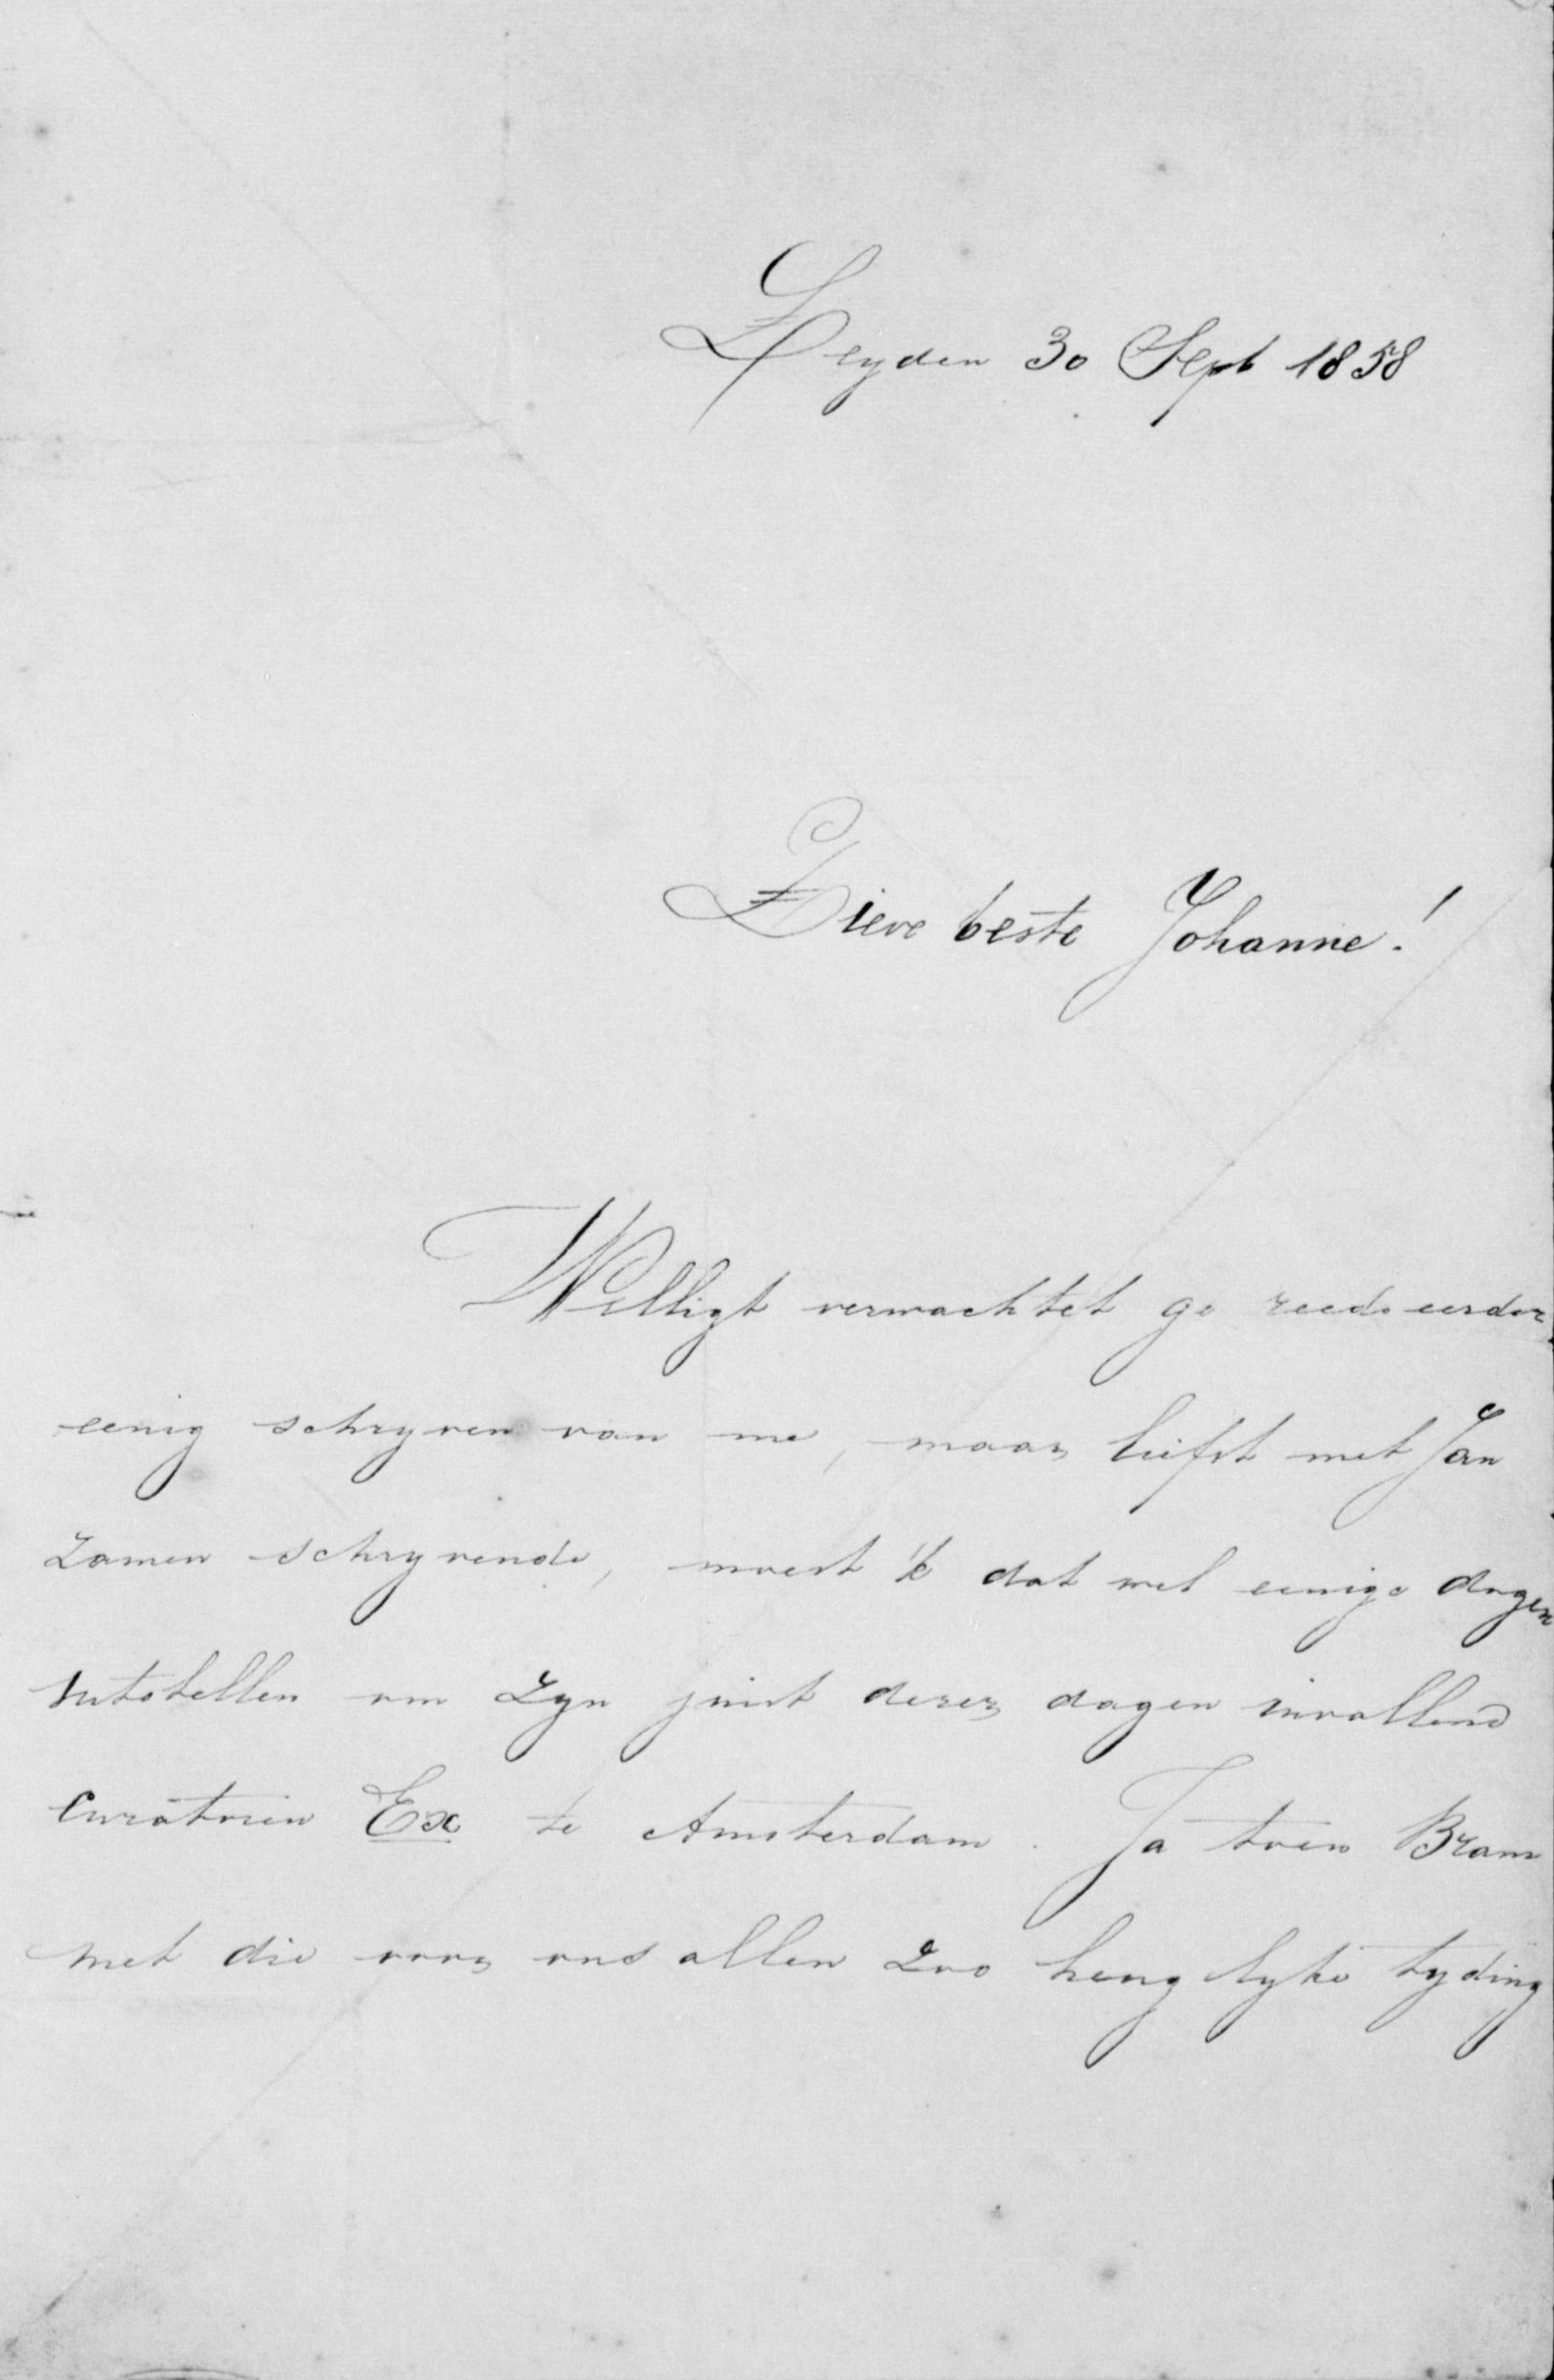 Leyden 30 Sept 1858
Lieve beste Johanne!
Willigt verwachtet ge reeds eerder
eenig schryven van me, maar liefst met Jan
zamen schryvende, moest 'k dat wel eenige dagen
uitstellen om zyn juist dezer dagen invallend
Curatorien Ex te Amsterdam. Ja toen Bram
met die voor ons allen zoo heuglyke tyding